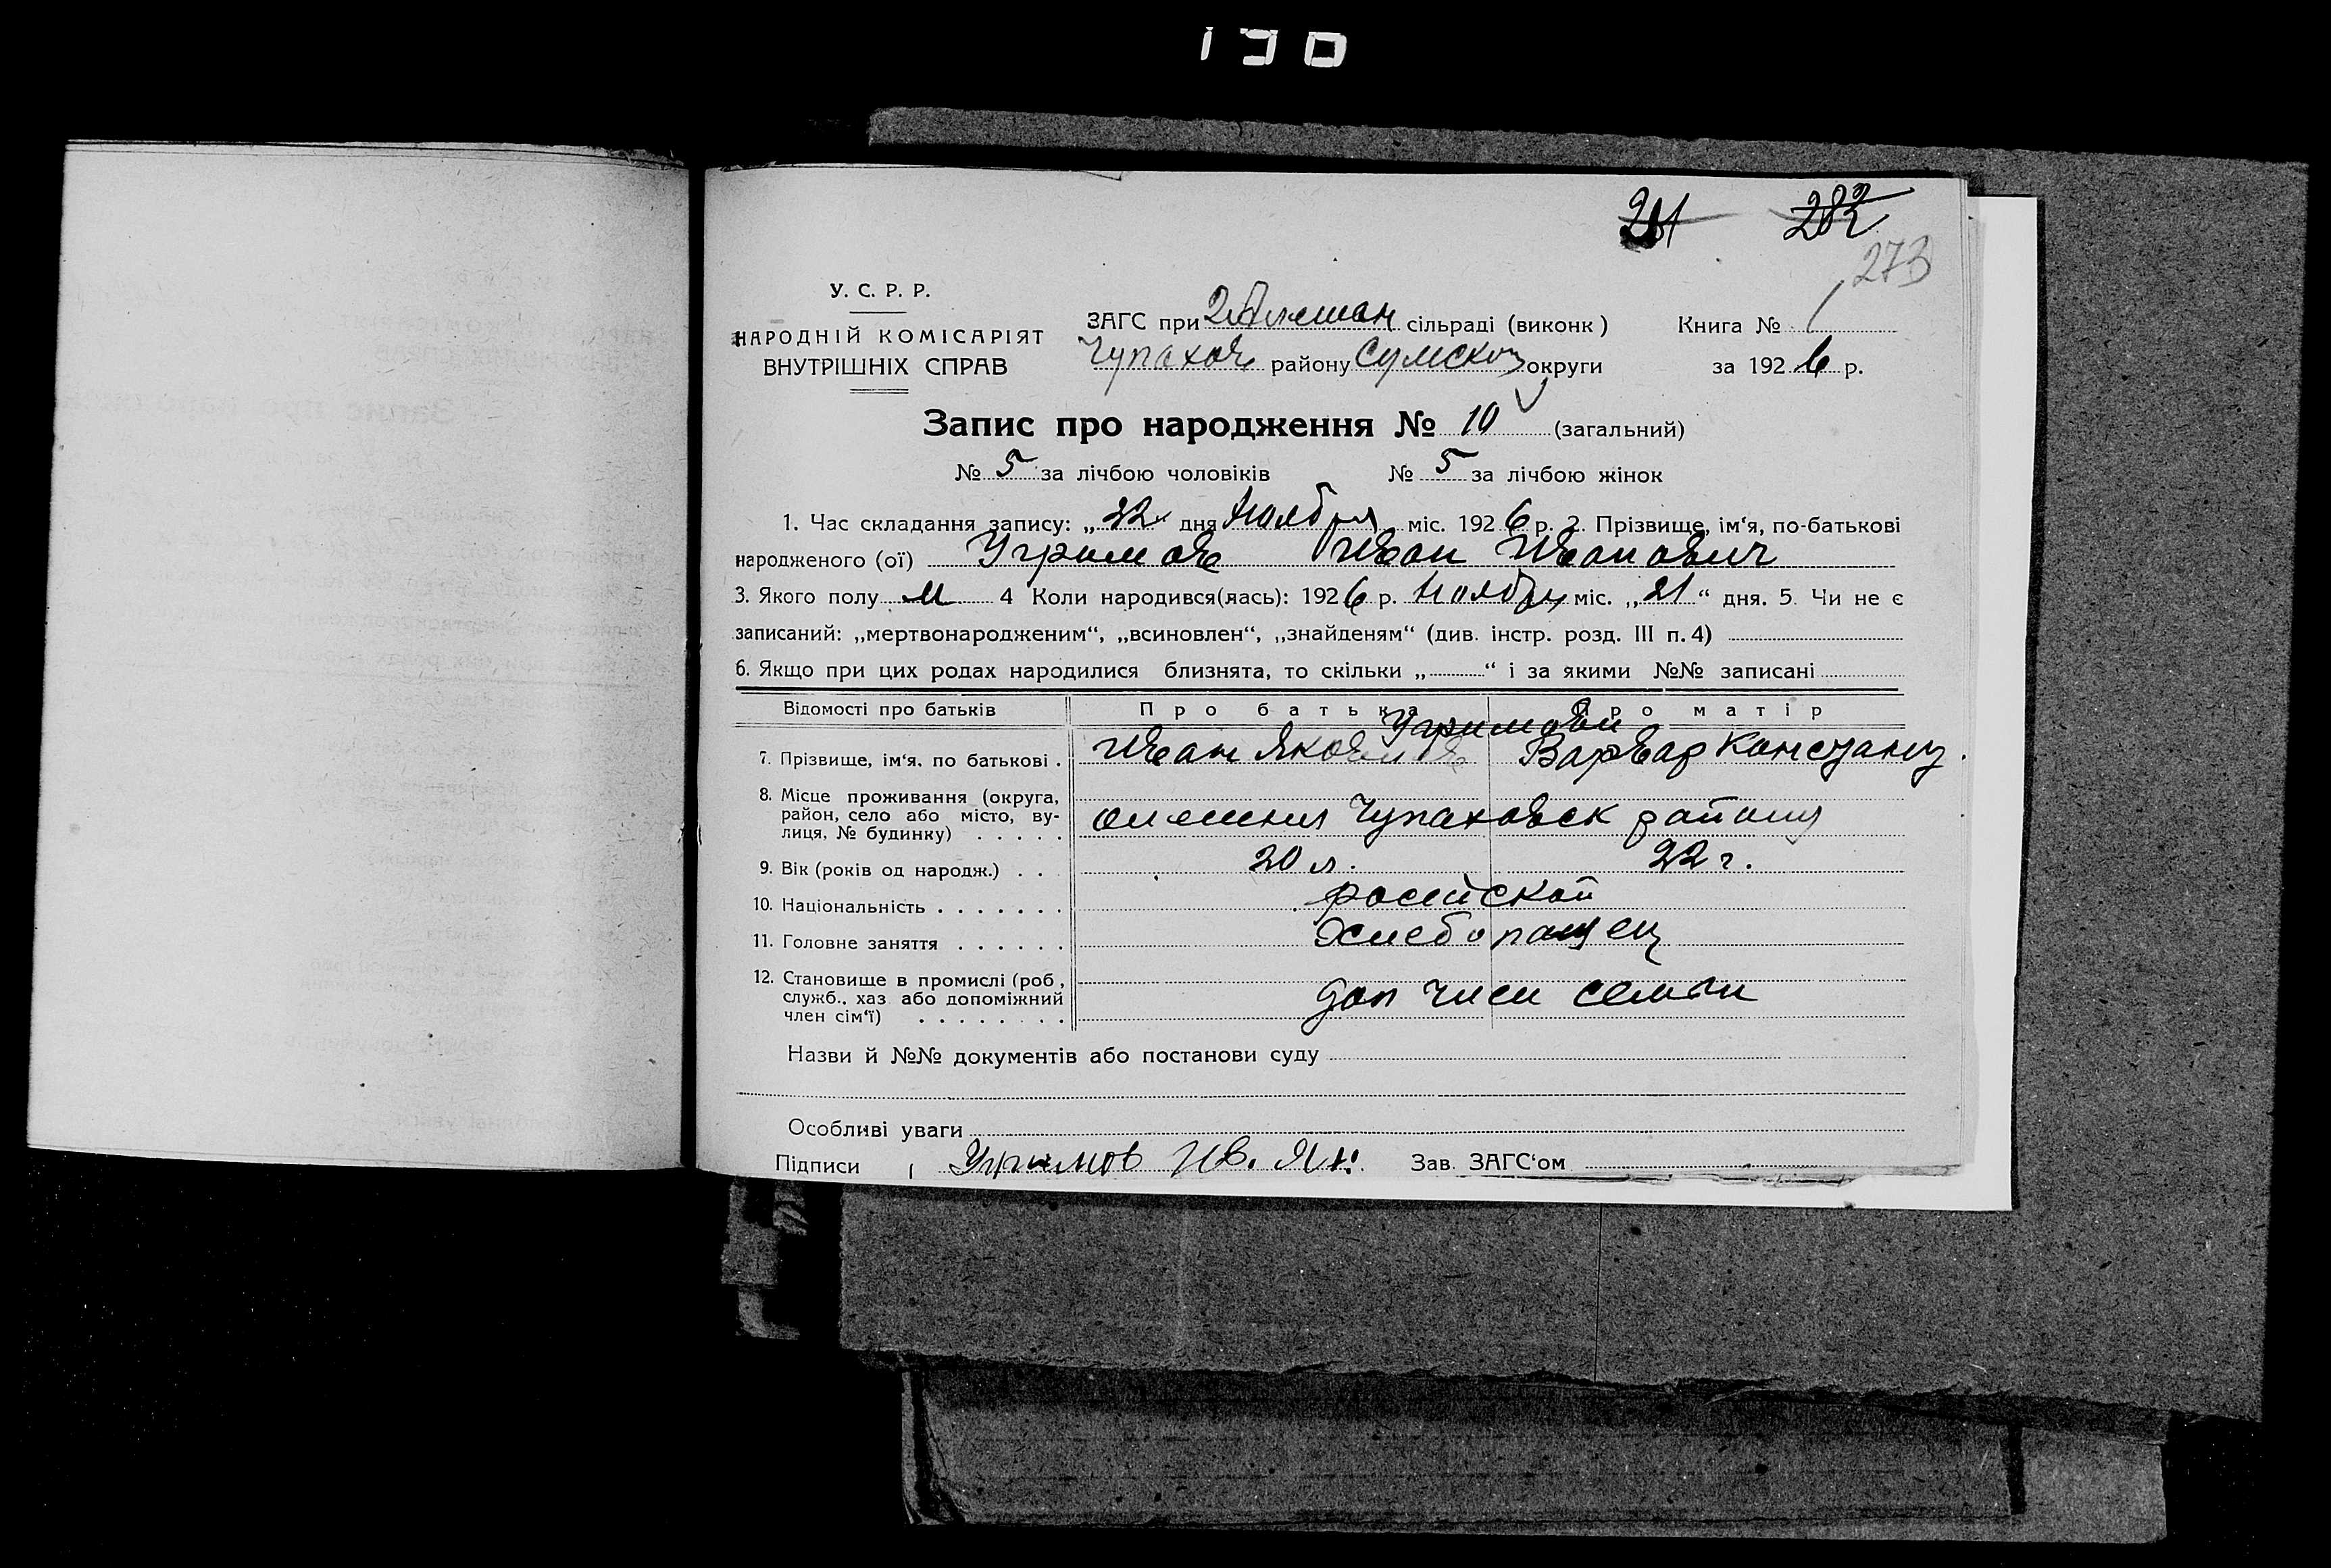 130
281 282
273
У. С. Р. Р.
НАРОДНІЙ КОМІСАРІЯТ
ВНУТРІШНІХ СПРАВ
ЗАГС при 2 Алешан сільраді (виконк)
Чупахов району Сумской округи
Книга № 1
за 1926 р.
Запис про народження № 10 (загальний)
№ 5 за лічбою чоловіків № 5 за лічбою жінок
1. Час складання запису: „22" дня Ноября міс. 1926 р. 2. Прізвище, ім'я, по-батькові
народженого (ої) Угримов Иван Иванович
3. Якого полу М 4 Коли народився(лась): 1926 р. Ноября міс. „21" дня. 5. Чи не є
записаний: „мертвонародженим", „всиновлен", „знайденям" (див. інстр. розд. III п. 4)
6. Якщо при цих родах народилися близнята, то скільки „ " і за якими №№ записані
Відомості про батьків Про батька Про матір
Угримови
7. Прізвище, ім'я, по батькові . Иван Яковлев Варвар Констанц
8. Місце проживання (округа,
район, село або місто, ву-
лиця, № будинку) . . . . . олешня Чупаховск району
9. Вік (років од народж.) . . . 20 л. 22 г.
10. Національність . . . . . . . російской
11. Головне заняття . . . . . . Хлебопашец
12. Становище в промислі (роб,
служб., хаз або допоміжний
член сім'ї) . . . . . . . . доп член семьи
Назви й №№ документів або постанови суду
Особливі уваги
Підписи Угримов Ив. Як. Зав. ЗАГС'ом